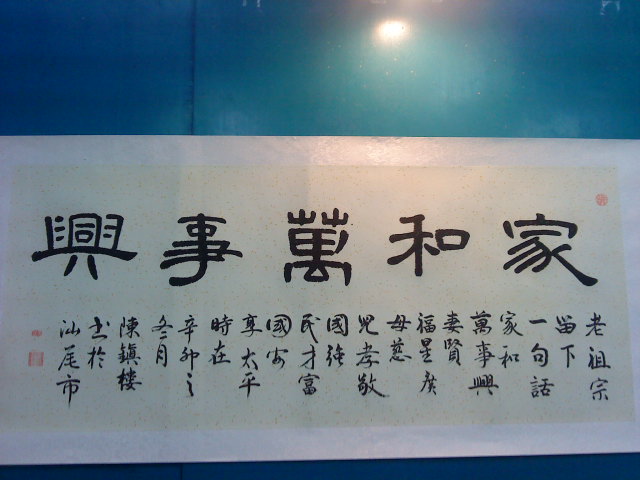 家和萬事興
老祖宗
留下
一句話
家和
萬事興
妻賢
福星廣
母慈
兒孝敬
國強
民才富
國安
享太平
時在
辛卯之
冬月
陳鎮樓
书於
汕尾市